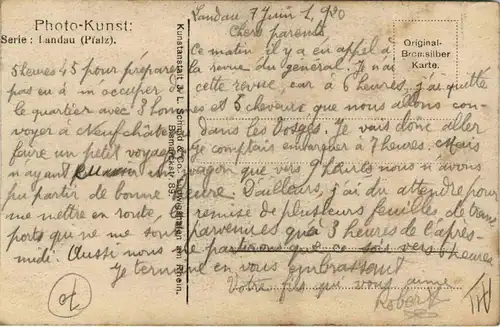 Photo-Kunst:
Serie: Landau (Pfalz).
Kunstanstalt J. L. Schmid & Co. Ludwigshafen am Rhein.
Bismarckstr. 8
Original-
Bromsilber
Karte.
Landau 7 juin 1920
Chers parents
Ce matin il y a eu appel à
5 heures 45 pour préparer la revue du général. Je n'ai
pas eu à m'occuper de cette revue, car à 6 heures, j'ai quitté
le quartier avec 3 hommes et 5 chevaux que nous allons con-
voyer à Neufchâteau dans les Vosges. Je vais donc aller
faire un petit voyage. Je comptais embarquer à 7 heures. Mais
n'ayant eu un wagon que vers 9 heures nous n'avons
pu partir de bonne heure. D'ailleurs, j'ai du attendre pour
me mettre en route, remise de plusieurs feuilles de trans
ports qui ne me sont parvenues qu'à 3 heures de l'après-
midi. Aussi nous ne partirons que ce soir vers 6 heures
Je termine en vous embrassant
Votre fils qui vous aime
Robert